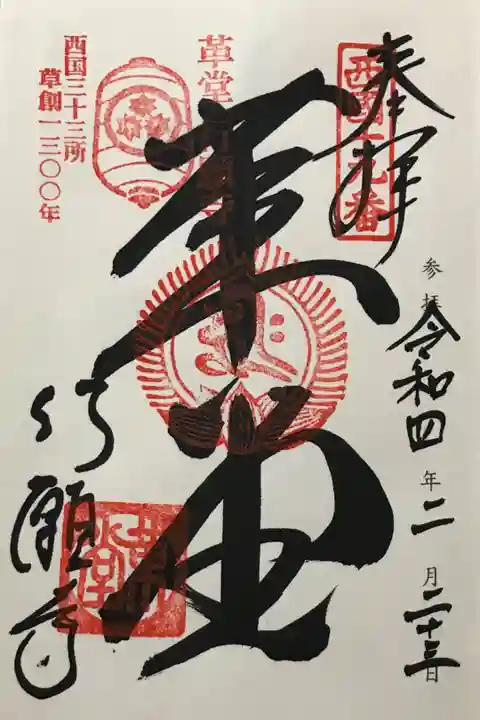 奉拝
西国十九番
参拝 令和四年二月二十三日
革堂
革堂行願寺
行願寺
西国三十三所
草創一三〇〇年
革堂